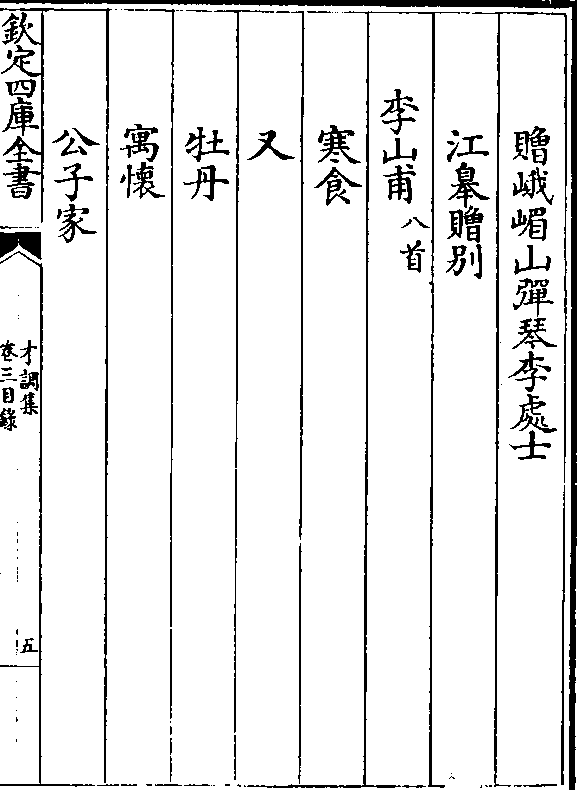 贈峨嵋山彈琴李處士
江皋贈別
李山甫八首
寒食
又
牡丹
寓懷
公子家
欽定四庫全書
才調集
卷三目錄
五